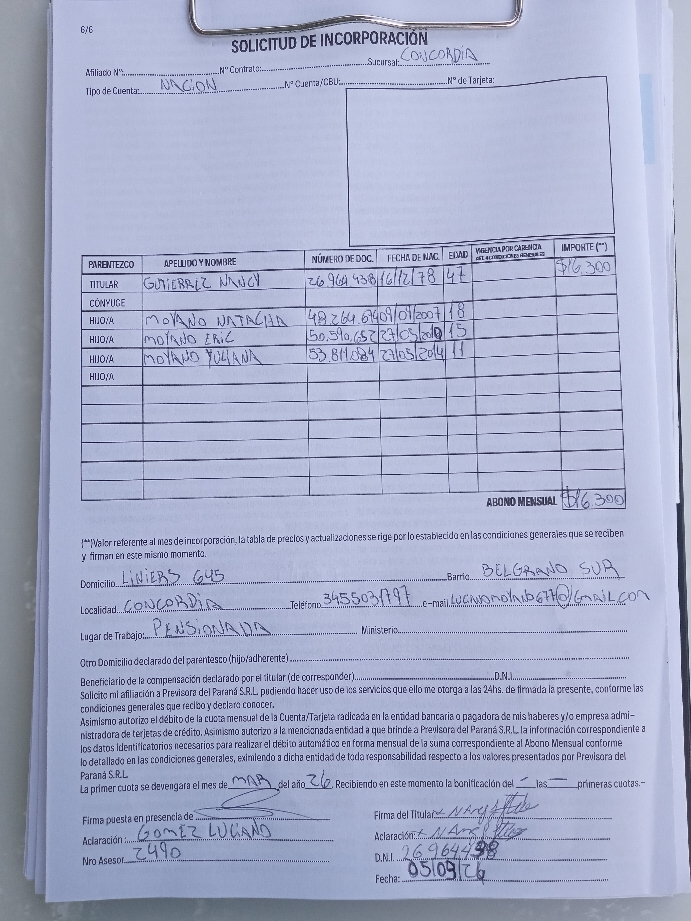 6/6
SOLICITUD DE INCORPORACIÓN
Afiliado Nº: Nº Contrato: Sucursal: CONCORDIA
Tipo de Cuenta: NACION Nº Cuenta/CBU: Nº de Tarjeta:
PARENTEZCO APELLIDO Y NOMBRE NÚMERO DE DOC. FECHA DE NAC. EDAD VIGENCIA POR CARENCIA IMPORTE (**)
TITULAR GUTIERREZ NANCY 26.964.438 16/12/78 47 $16.300
CÓNYUGE
HIJO/A MOYANO NATACHA 48.264.674 09/01/2007 18
HIJO/A MOYANO ERIC 50.590.652 27/05/2010 15
HIJO/A MOYANO YULIANA 53.811.084 27/03/2014 11
HIJO/A
ABONO MENSUAL $16.300
(**)Valor referente al mes de incorporación, la tabla de precios y actualizaciones se rige por lo establecido en las condiciones generales que se reciben
y firman en este mismo momento.
Domicilio LINIERS 645 Barrio BELGRANO SUR
Localidad CONCORDIA Teléfono 3455031797 e-mail
Lugar de Trabajo: PENSIONADA Ministerio
Otro Domicilio declarado del parentesco (hijo/adherente)
Beneficiario de la compensación declarado por el titular (de corresponder) D.N.I.
Solicito mi afiliación a Previsora del Paraná S.R.L. pudiendo hacer uso de los servicios que ello me otorga a las 24hs. de firmada la presente, conforme las
condiciones generales que recibo y declaro conocer.
Asimismo autorizo el débito de la cuota mensual de la Cuenta/Tarjeta radicada en la entidad bancaria o pagadora de mis haberes y/o empresa admi-
nistradora de terjetas de crédito. Asimismo autorizo a la mencionada entidad a que brinde a Previsora del Paraná S.R.L. la información correspondiente a
los datos identificatorios necesarios para realizar el débito automático en forma mensual de la suma correspondiente al Abono Mensual conforme
lo detallado en las condiciones generales, eximiendo a dicha entidad de toda responsabilidad respecto a los valores presentados por Previsora del
Paraná S.R.L
La primer cuota se devengara el mes de MAR del año 26. Recibiendo en este momento la bonificación del - las — primeras cuotas.-
Firma puesta en presencia de
Firma del Titular
Aclaración: GOMEZ LUCIANO
Aclaración:
Nro Asesor 2490
D.N.I. 26964438
Fecha: 05/03/26